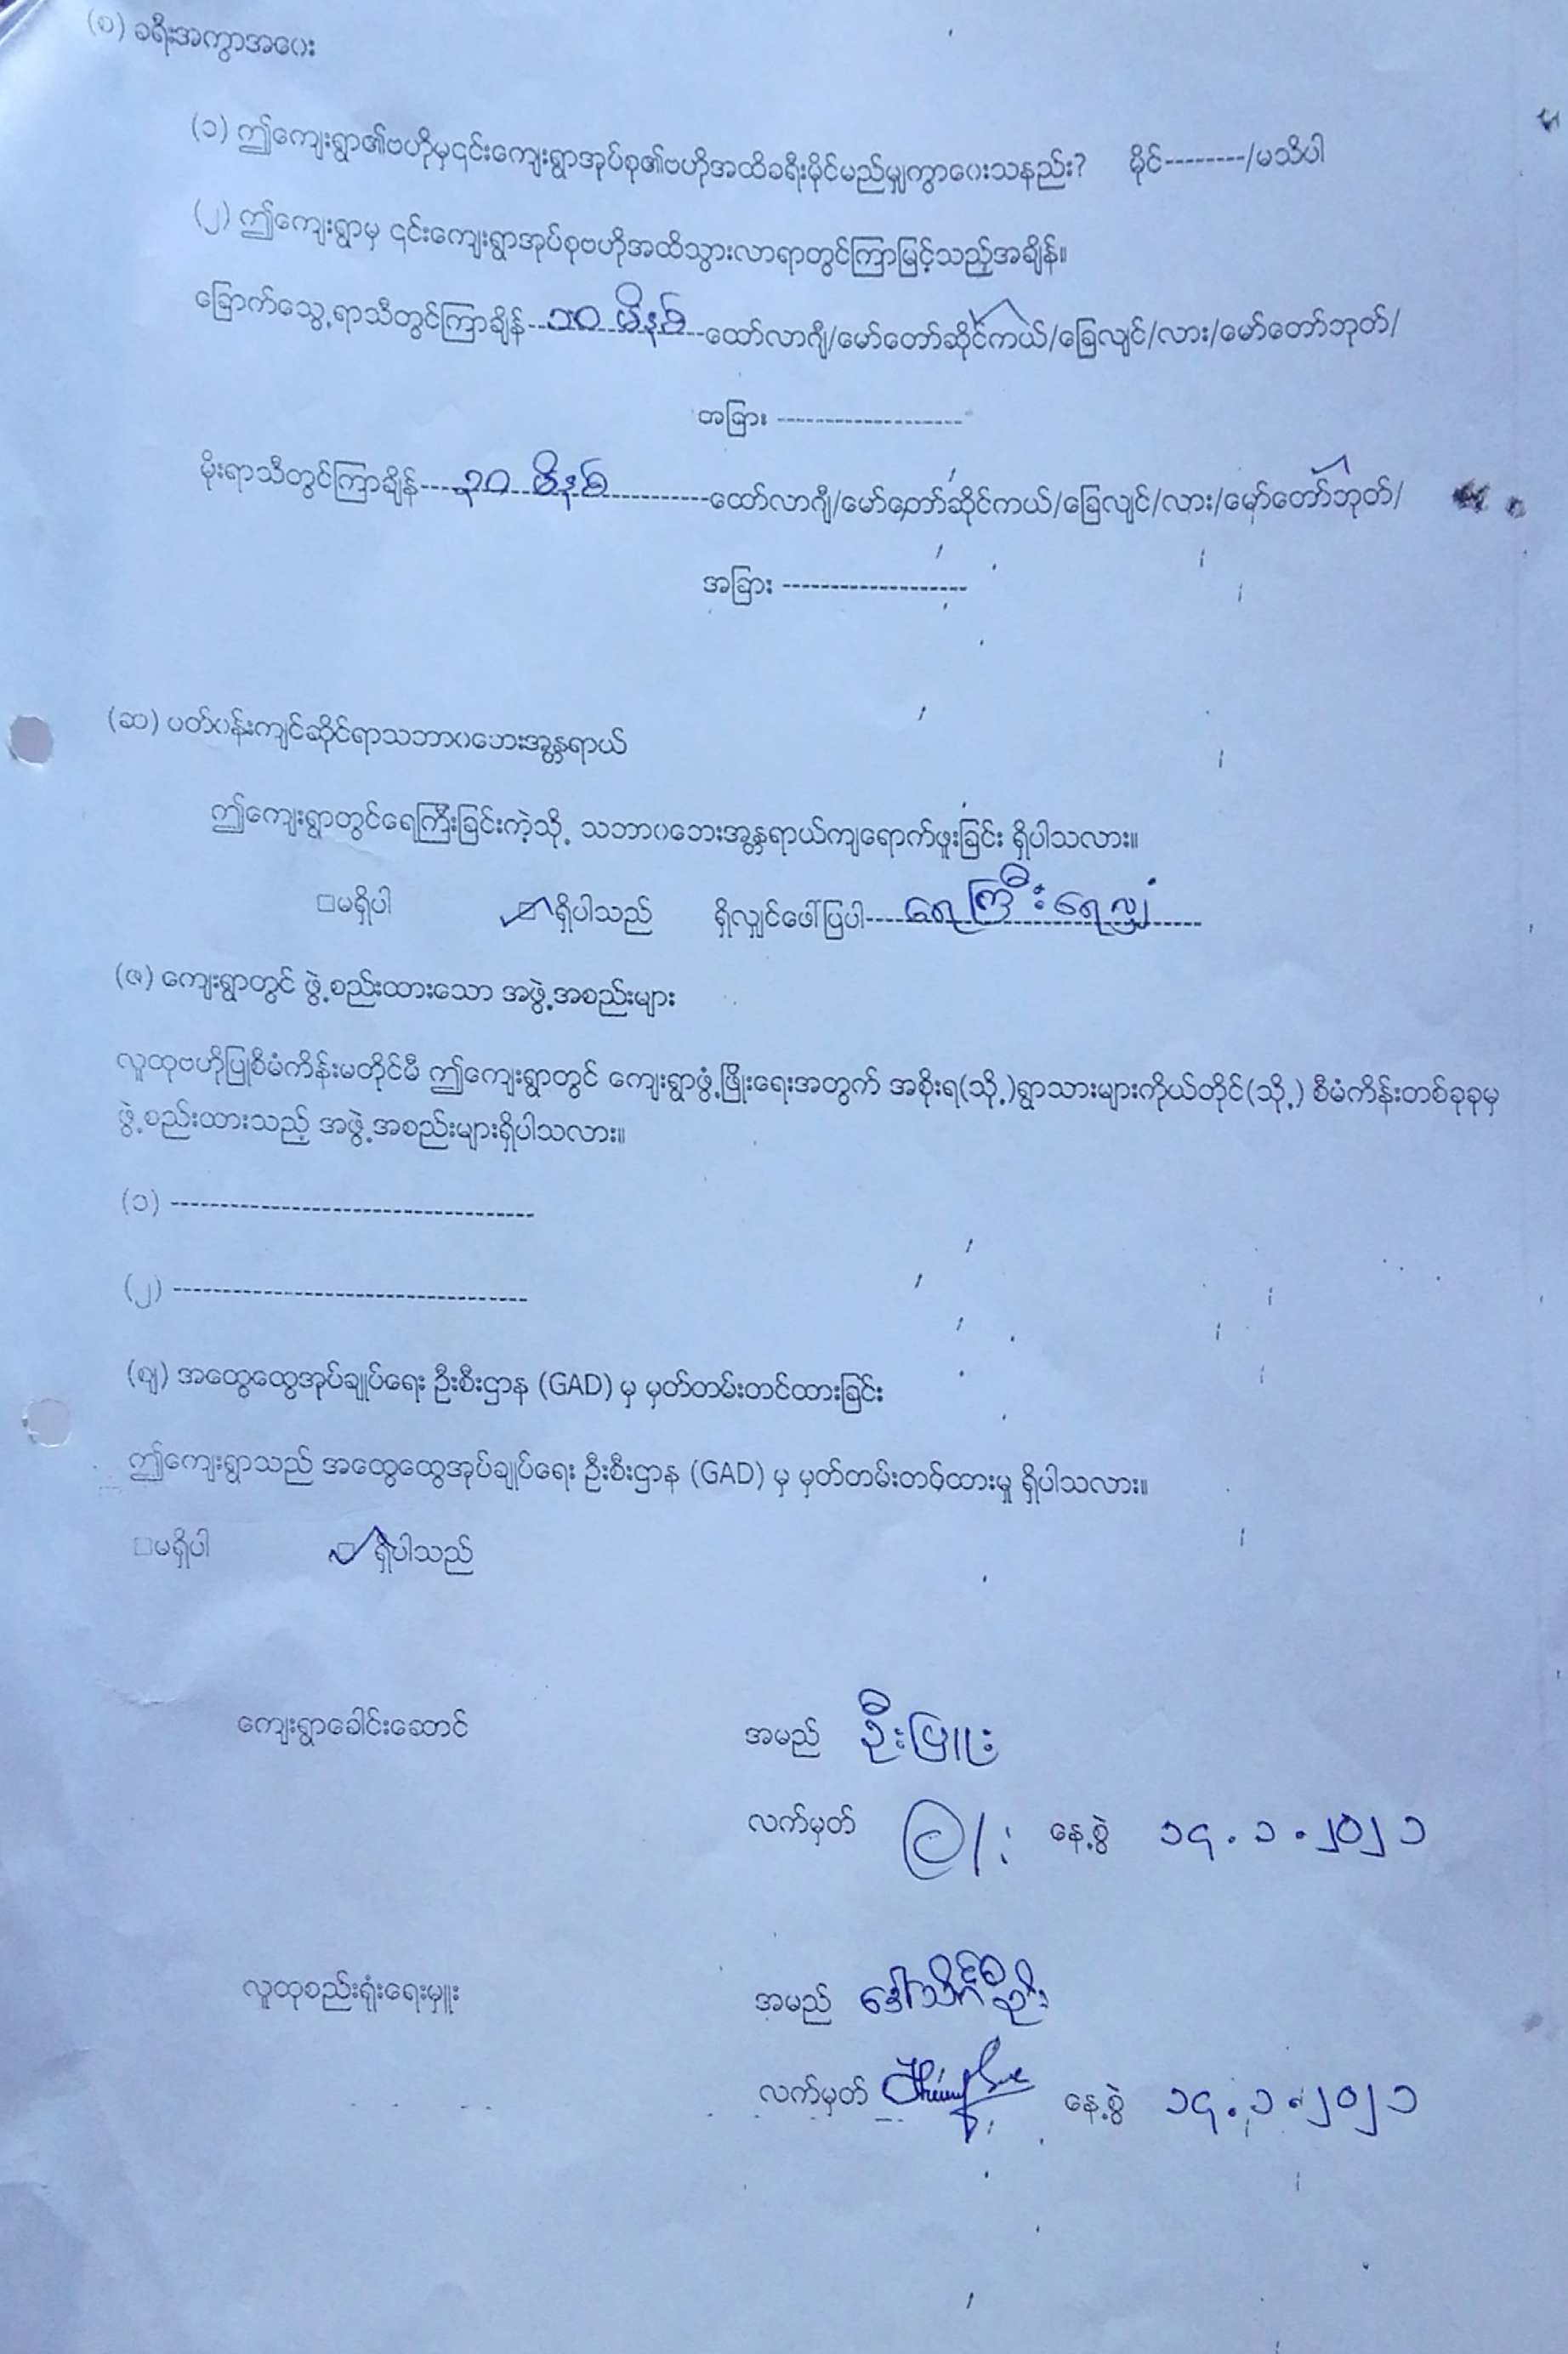 (စ) ခရီးအကွာအဝေး
(၁) ဤကျေးရွာ၏ဗဟိုမှ၎င်းကျေးရွာအုပ်စု၏ဗဟိုအထိခရီးမိုင်မည်မျှကွာဝေးသနည်း? မိုင်--------/မသိပါ
(၂) ဤကျေးရွာမှ ၎င်းကျေးရွာအုပ်စုဗဟိုအထိသွားလာရာတွင်ကြာမြင့်သည့်အချိန်။
ခြောက်သွေ့ရာသီတွင်ကြာချိန်---၁၀ မိနစ်---ထော်လာဂျီ/မော်တော်ဆိုင်ကယ်/ခြေလျင်/လား/မော်တော်ဘုတ်/
အခြား --------------------
မိုးရာသီတွင်ကြာချိန်----၃၀ မိနစ်----------ထော်လာဂျီ/မော်တော်ဆိုင်ကယ်/ခြေလျင်/လား/မော်တော်ဘုတ်/
အခြား --------------------
(ဆ) ပတ်ဝန်းကျင်ဆိုင်ရာသဘာဝဘေးအန္တရာယ်
ဤကျေးရွာတွင်ရေကြီးခြင်းကဲ့သို့ သဘာဝဘေးအန္တရာယ်ကျရောက်ဖူးခြင်း ရှိပါသလား။
□မရှိပါ ☑ရှိပါသည် ရှိလျှင်ဖေါ်ပြပါ----ရေကြီးရေလျှံ----
(ဇ) ကျေးရွာတွင် ဖွဲ့စည်းထားသော အဖွဲ့အစည်းများ
လူထုဗဟိုပြုစီမံကိန်းမတိုင်မီ ဤကျေးရွာတွင် ကျေးရွာဖွံ့ဖြိုးရေးအတွက် အစိုးရ(သို့)ရွာသားများကိုယ်တိုင်(သို့) စီမံကိန်းတစ်ခုခုမှ
ဖွဲ့စည်းထားသည့် အဖွဲ့အစည်းများရှိပါသလား။
(၁) ------------------------------------
(၂) ------------------------------------
(ဈ) အထွေထွေအုပ်ချုပ်ရေး ဦးစီးဌာန (GAD) မှ မှတ်တမ်းတင်ထားခြင်း
ဤကျေးရွာသည် အထွေထွေအုပ်ချုပ်ရေး ဦးစီးဌာန (GAD) မှ မှတ်တမ်းတင်ထားမှု ရှိပါသလား။
□မရှိပါ ☑ရှိပါသည်
ကျေးရွာခေါင်းဆောင် အမည် ဦးဖြူး
လက်မှတ် နေ့စွဲ ၁၄.၁.၂၀၂၁
လူထုစည်းရုံးရေးမှူး အမည်
လက်မှတ် နေ့စွဲ ၁၄.၁.၂၀၂၁